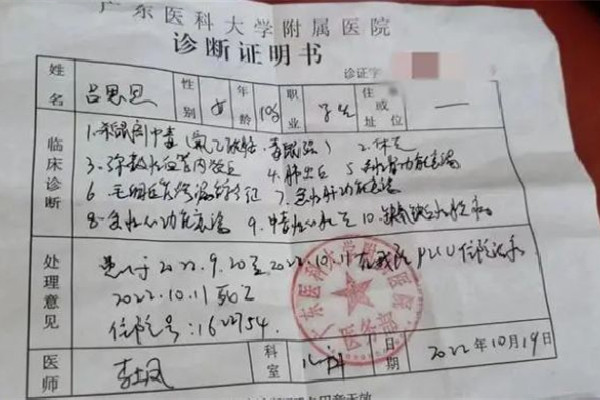 广东医科大学附属医院
诊断证明书
诊证字
姓名 吕思思 性别 女 年龄 10岁 职业 学生 住址或单位 —
临床诊断
1. 杀鼠剂中毒(氟乙酰胺、毒鼠强) 2. 休克
3. 弥散性血管内凝血 4. 肺出血 5. 急性肾功能衰竭
6. 毛细血管渗漏综合征 7. 急性肝功能衰竭
8. 急性心功能衰竭 9. 中毒性心肌炎 10. 缺氧缺血性脑病
处理意见
患儿于2022.9.20至2022.10.11在我院PICU住院
2022.10.11死亡
住院号:1622754.
医师 科室 儿科 日期 2022年10月19日